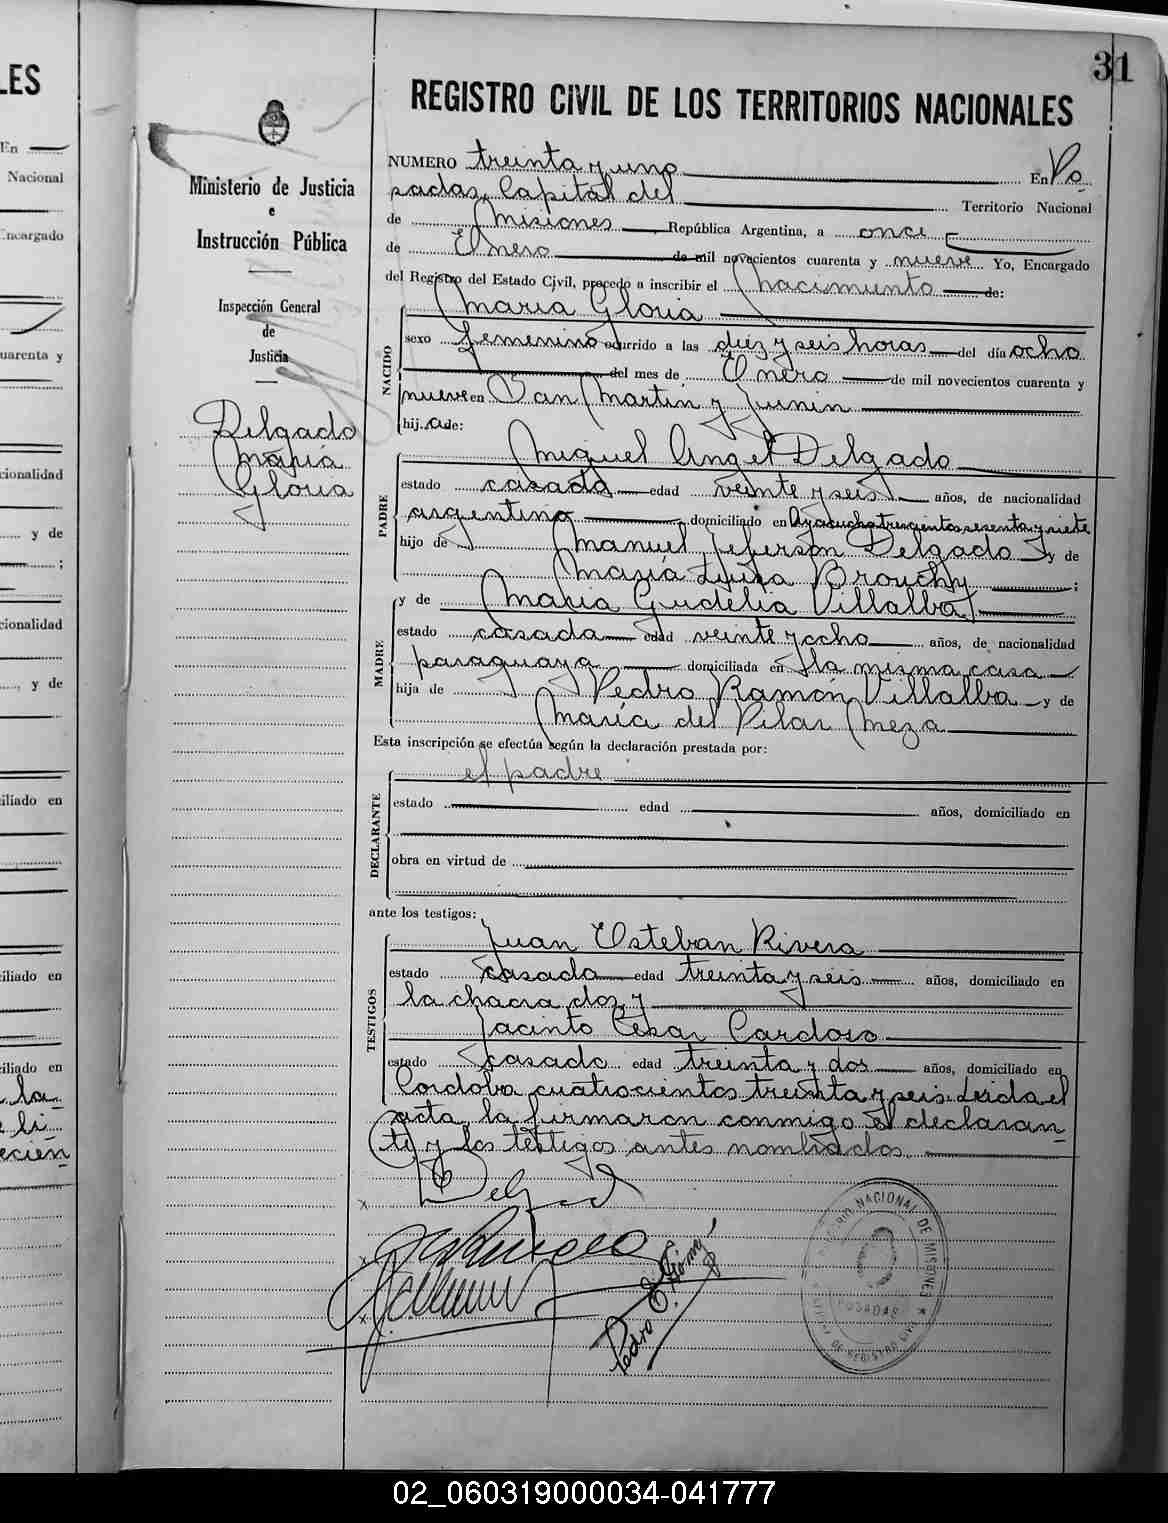 31
REGISTRO CIVIL DE LOS TERRITORIOS NACIONALES
Ministerio de Justicia
e
Instrucción Pública
Inspección General
de
Justicia
Delgado
María
Gloria
NUMERO treinta y uno En Po
sadas, Capital del Territorio Nacional
de Misiones República Argentina, a once
de Enero de mil novecientos cuarenta y nueve Yo, Encargado
del Registro del Estado Civil, procedo a inscribir el Nacimiento de:
María Gloria
NACIDO
sexo femenino ocurrido a las diez y seis horas del día ocho
del mes de Enero de mil novecientos cuarenta y
nueve en San Martin y Junin
hij.a de:
Miguel Angel Delgado
PADRE
estado casado edad veinte y seis años, de nacionalidad
argentino domiciliado en Ayacucho trescientos sesenta y siete
hijo de Manuel Jeferson Delgado y de
María Luisa Brouchy ;
y de María Gudelia Villalba
MADRE
estado casada edad veinte y ocho años, de nacionalidad
paraguaya domiciliada en la misma casa
hija de Pedro Ramón Villalba y de
María del Pilar Meza
Esta inscripción se efectúa según la declaración prestada por:
el padre
DECLARANTE
estado edad años, domiciliado en
obra en virtud de
ante los testigos:
Juan Esteban Rivera
TESTIGOS
estado casado edad treinta y seis años, domiciliado en
la chacra dos y
Jacinto César Cardozo
estado casado edad treinta y dos años, domiciliado en
Cordoba cuatrocientos treinta y seis. Leida el
acta la firmaron conmigo el declaran-
te y los testigos antes nombrados.
Delgad
Pedro
NACIONAL DE MISIONES
POSADAS
02_060319000034-041777
LES
En
Nacional
Encargado
uarenta y
cionalidad
y de
;
cionalidad
y de
iliado en
iliado en
iliado en
la-
li
ecien